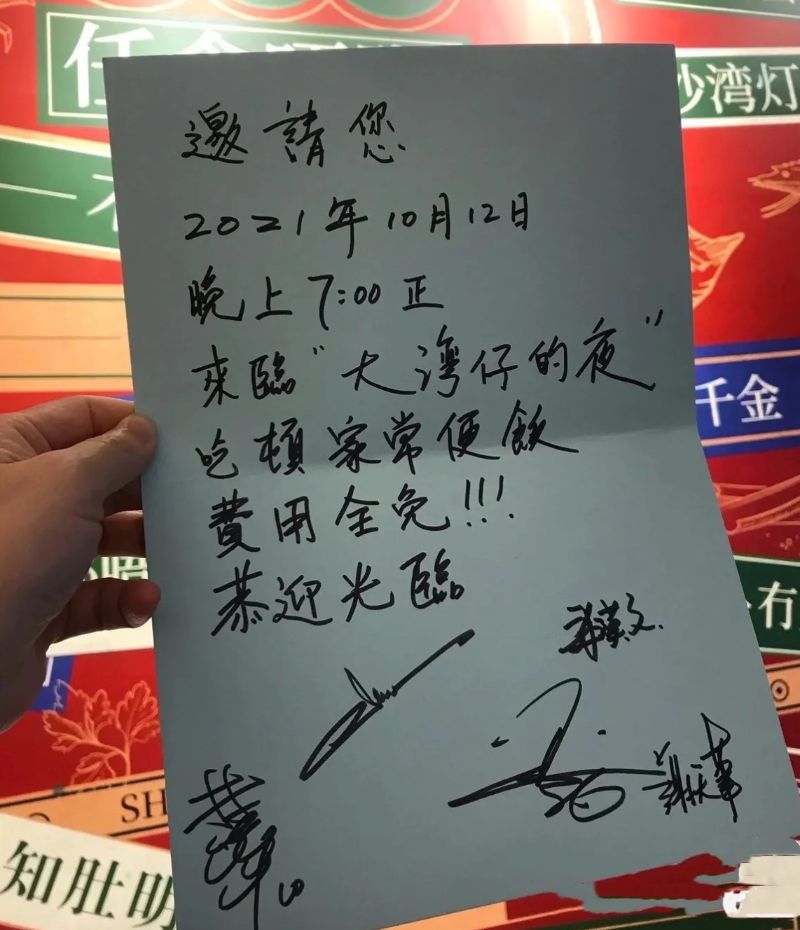 邀請您
2021年10月12日
晚上7:00正
來臨"大灣仔的夜"
吃頓家常便飯
費用全免!!!
恭迎光臨
沙湾灯
千金
SH
知肚明